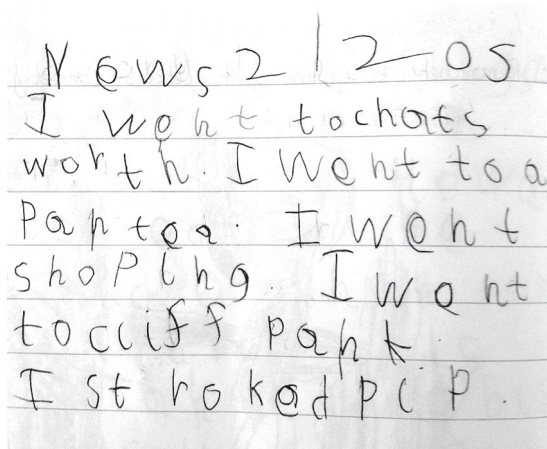 News 2 1 2 05
I went tochats
worth. I went to a
Pantoa. I went
shoping. I went
tocciff pank.
I stroked pip.